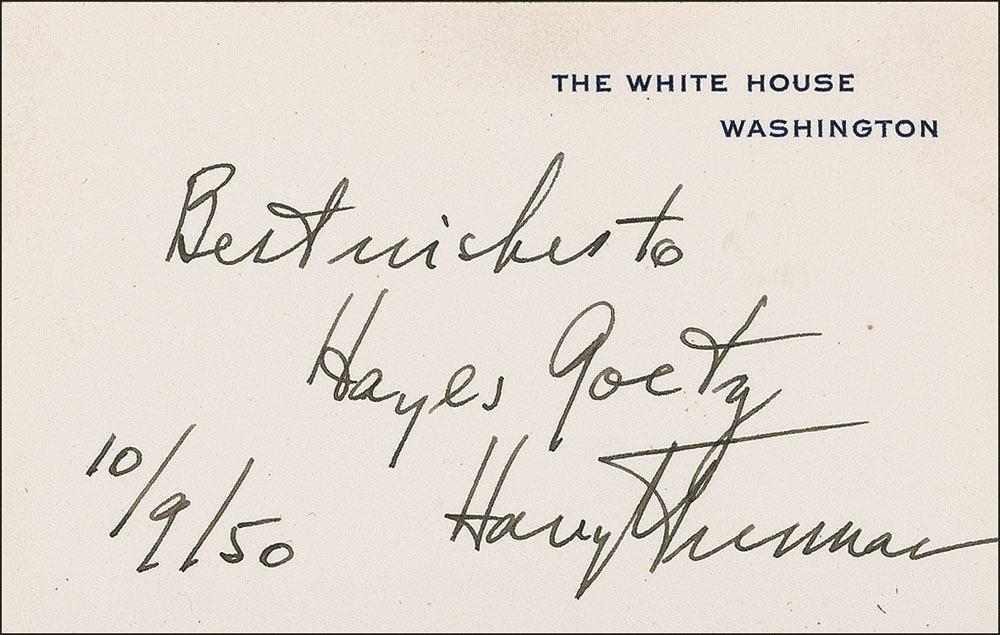 THE WHITE HOUSE
WASHINGTON
Best wishes to
Hayes Goetz
10/9/50
Harry Truman